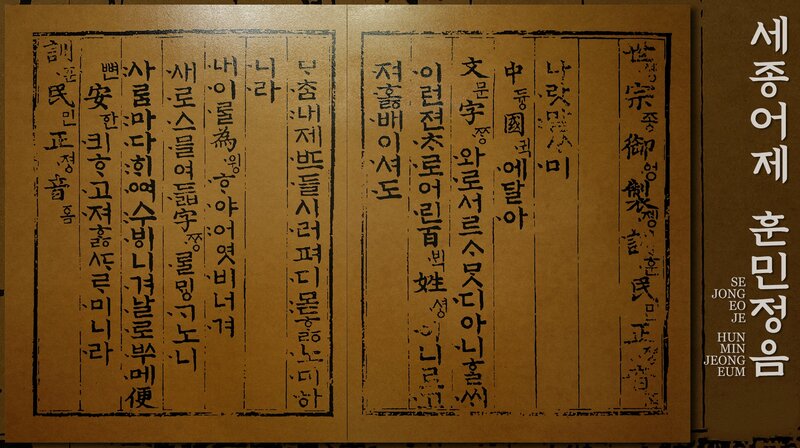 세종어제 훈민정음
SE
JONG
EO
JE
HUN
MIN
JEONG
EUM
世솅宗종御엉製졩訓훈民민正졍音
나랏말ᄊᆞ미
中듕國귁에달아
文문字ᄍᆞᆼ와로서르ᄉᆞᄆᆞᆺ디아니ᄒᆞᆯᄊᆡ
이런젼ᄎᆞ로어린百ᄇᆡᆨ姓셩이니르고
져호ᇙ배이셔도
ᄆᆞᄎᆞᆷ내제ᄠᅳ들시러펴디몯ᄒᆞᇙ노미하
니라
내이ᄅᆞᆯ為윙ᄒᆞ야어엿비너겨
새로스믈여듧字ᄍᆞᆼᄅᆞᆯᄆᆡᇰᄀᆞ노니
사ᄅᆞᆷ마다ᄒᆡᅇᅧ수ᄫᅵ니겨날로ᄡᅮ메便
뼌安한킈ᄒᆞ고져ᄒᆞᇙᄯᆞᄅᆞ미니라
訓훈民민正졍音흠